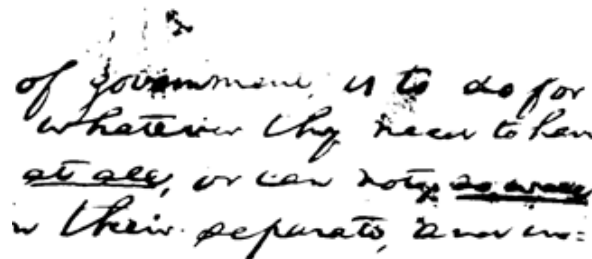 of government, is to do for
whatever they need to hav
at all, or can not, so well
their separate, and in=